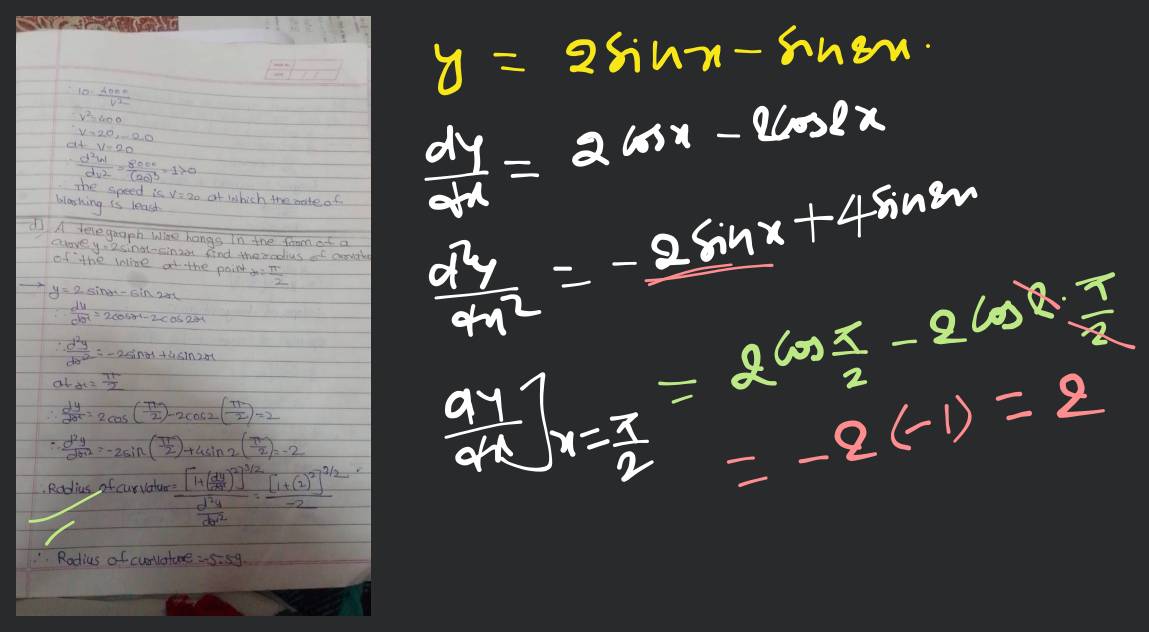 ∴ 10 = 4000/v²
∴ v² = 400
∴ v = 20, -20
at v = 20
∴ d²w/dv² = 8000/(20)³ = 1 > 0
∴ The speed is v = 20 at which the rate of
working is least.
d) A telegraph wire hangs in the form of a
curve y = 2sinx - sin2x find the radius of curvature
of the wire at the point x = π/2
→ y = 2sinx - sin2x
∴ dy/dx = 2cosx - 2cos2x
∴ d²y/dx² = -2sinx + 4sin2x
at x = π/2
∴ dy/dx = 2cos(π/2) - 2cos2(π/2) = 2
∴ d²y/dx² = -2sin(π/2) + 4sin2(π/2) = -2
∴ Radius of curvature = [1+(dy/dx)²]^3/2 / d²y/dx² = [1+(2)²]^3/2 / -2
∴ Radius of curvature = -5.59
y = 2sinx - sin2x.
dy/dx = 2cosx - 2cos2x
d²y/dx² = -2sinx + 4sin2x
dy/dx]x=π/2 = 2cosπ/2 - 2cos2·π/2
= -2(-1) = 2